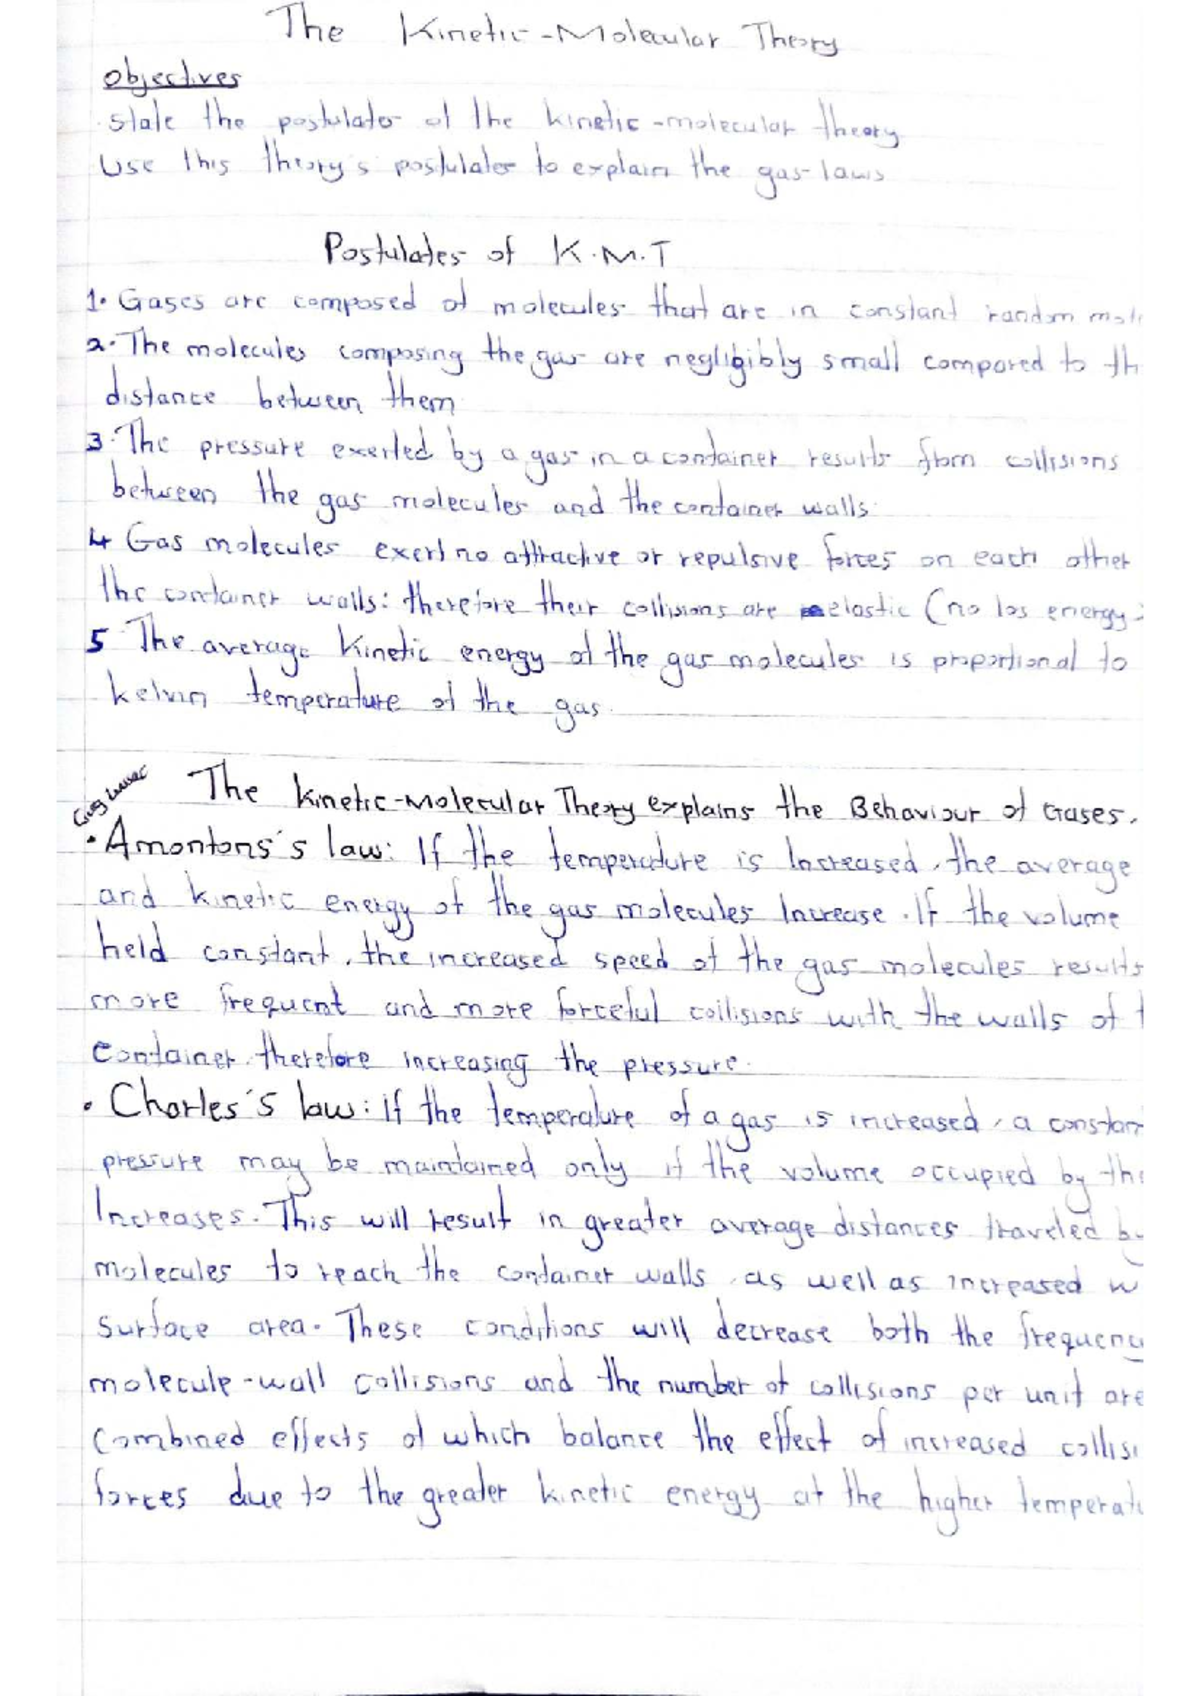 The Kinetic-Molecular Theory
Objectives
State the postulates of the kinetic-molecular theory
Use this theory's postulates to explain the gas laws
Postulates of K.M.T
1. Gases are composed of molecules that are in constant random moti
2. The molecules composing the gas are negligibly small compared to th
distance between them
3. The pressure exerted by a gas in a container results from collisions
between the gas molecules and the container walls.
4 Gas molecules exert no attractive or repulsive forces on each other
the container walls: therefore their collisions are elastic (no los energy
5 The average kinetic energy of the gas molecules is proportional to
kelvin temperature of the gas.
The Kinetic-Molecular Theory explains the Behaviour of Gases.
• Amontons's law: If the temperature is Increased, the average
and kinetic energy of the gas molecules Increase. If the volume
held constant, the increased speed of the gas molecules results
more frequent and more forceful collisions with the walls of t
container. therefore increasing the pressure.
• Charles's law: if the temperature of a gas is increased, a constan
pressure may be maintained only if the volume occupied by the
Increases. This will result in greater average distances traveled by
molecules to reach the container walls, as well as increased w
surface area. These conditions will decrease both the frequenc
molecule-wall collisions and the number of collisions per unit are
Combined effects of which balance the effect of increased collisi
forces due to the greater kinetic energy at the higher temperatu